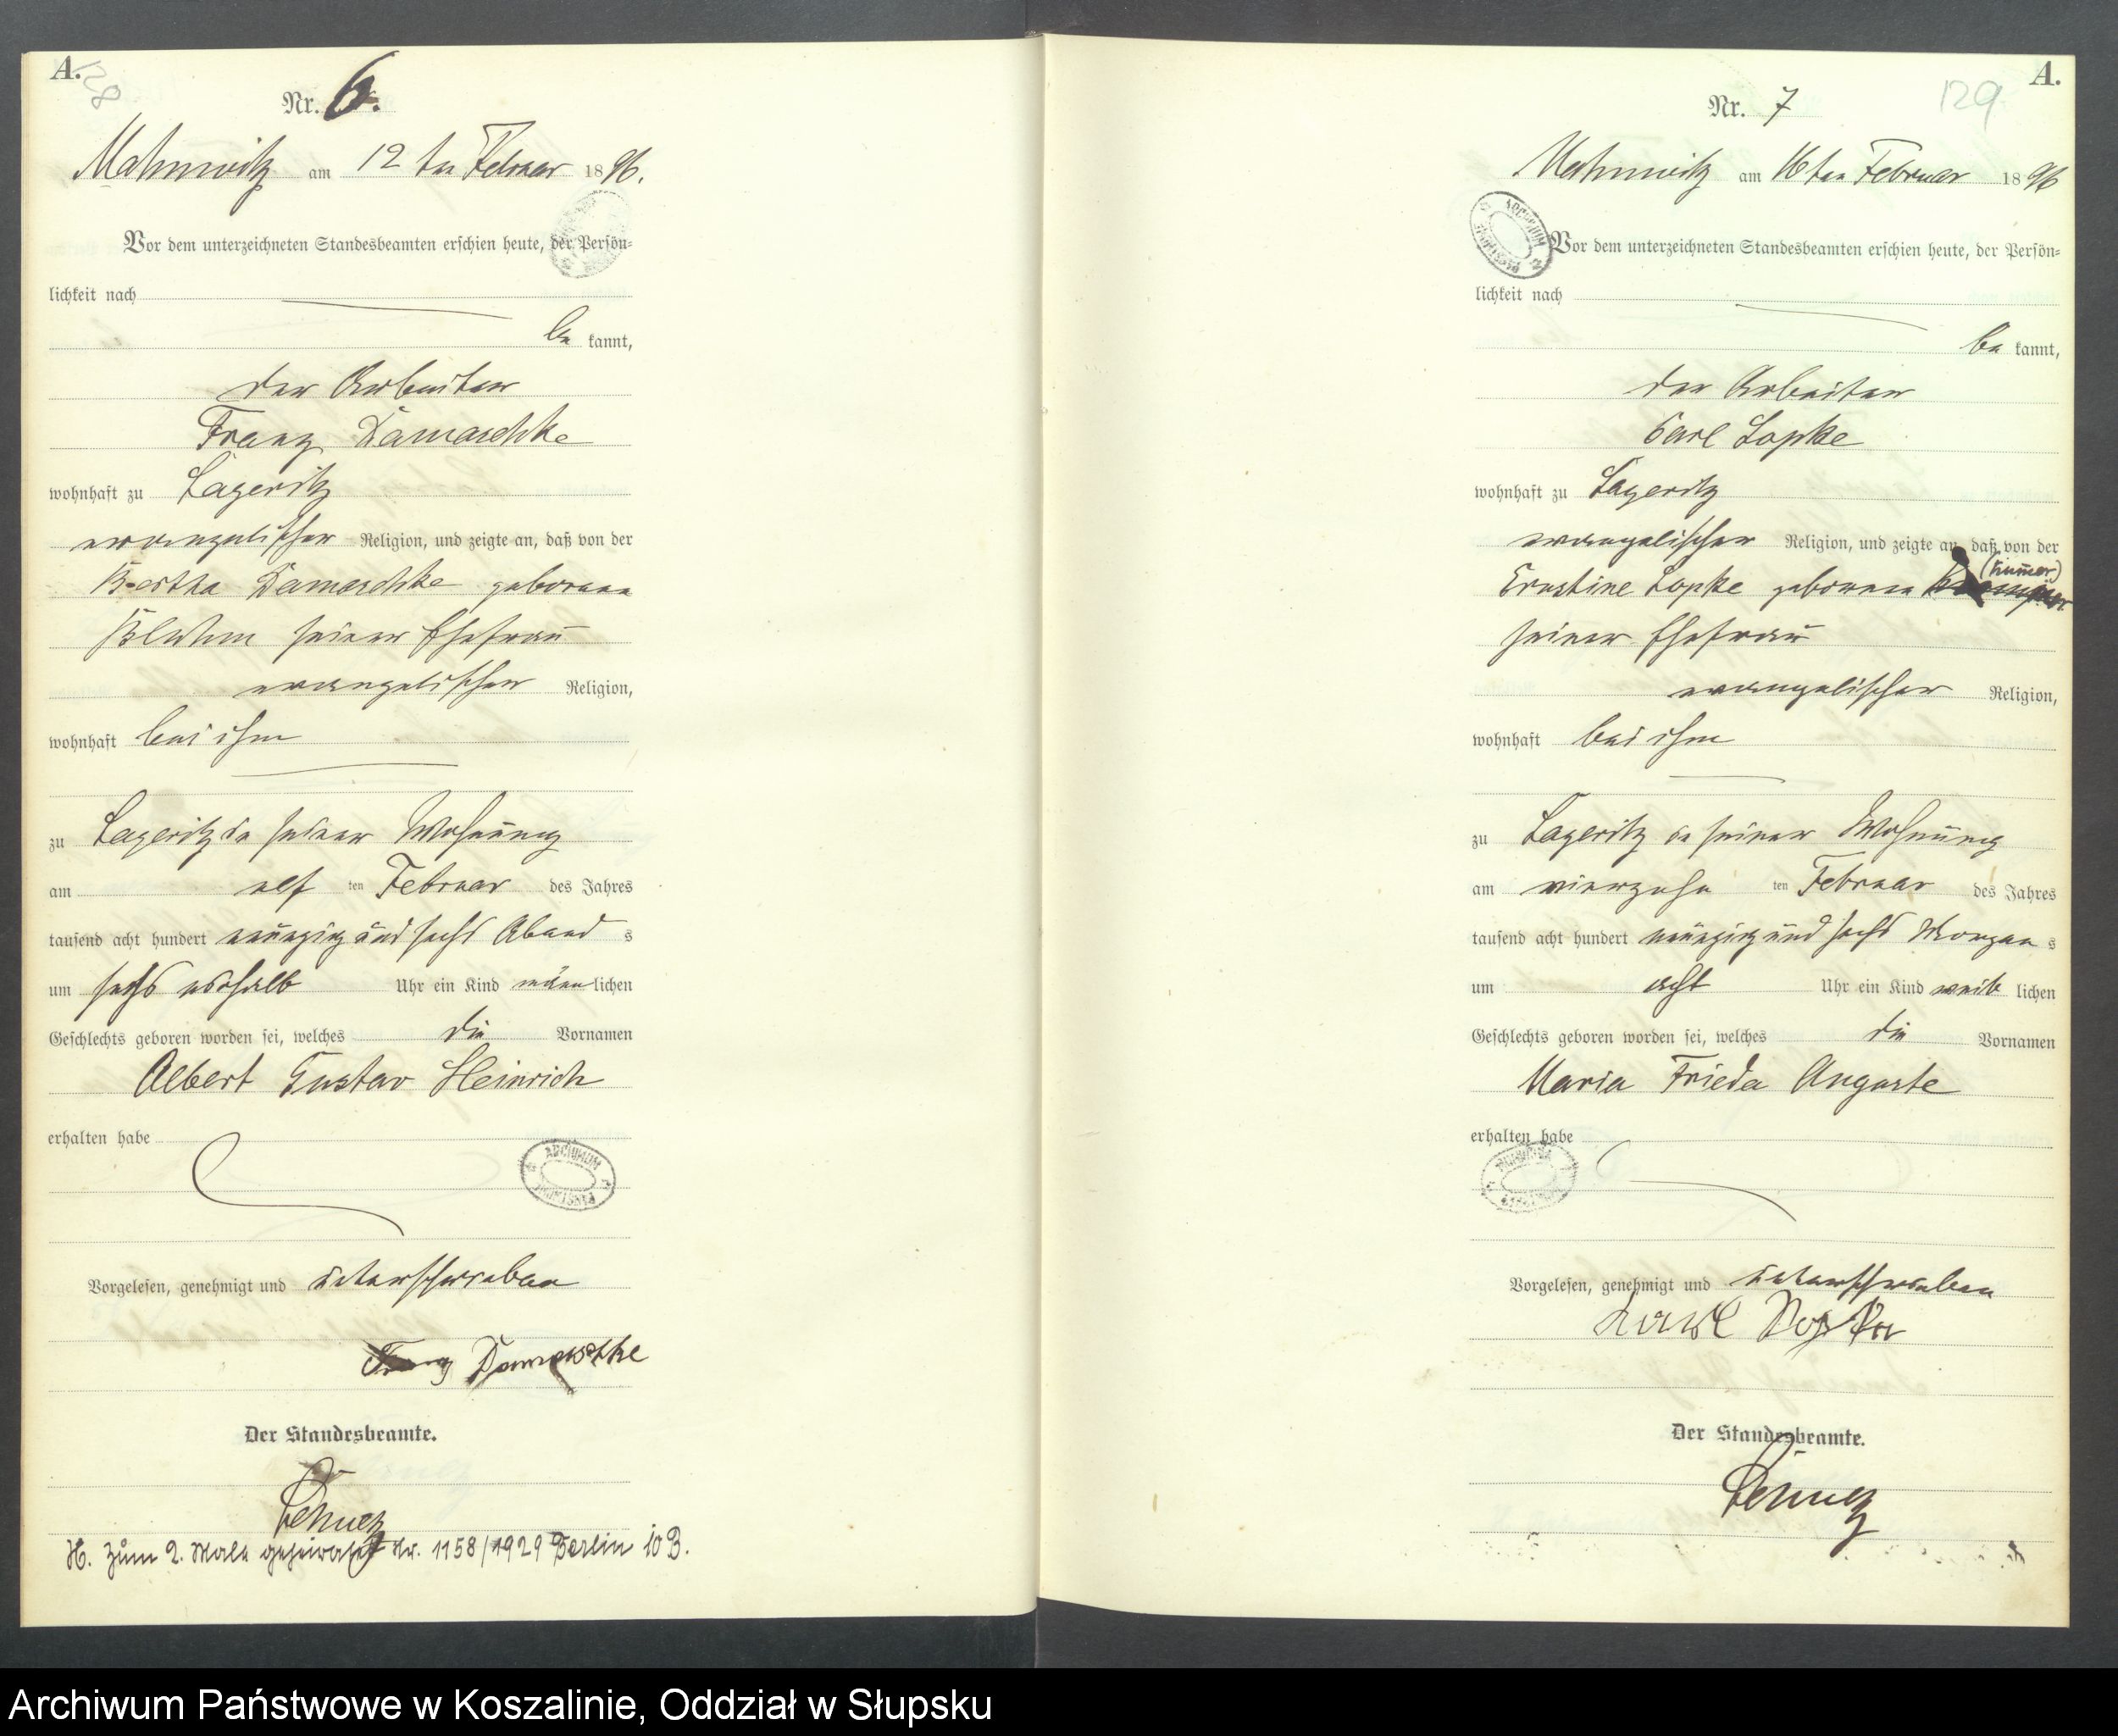 A.
38
Nr. 6.
Mahnwitz am 12 ten Februar 1896.
Vor dem unterzeichneten Standesbeamten erschien heute, der Persön=
lichkeit nach
be kannt,
der Arbeiter
Franz Damaschke
wohnhaft zu Lageritz
evangelischer Religion, und zeigte an, daß von der
Bertha Damaschke geborene
Bluhm seiner Ehefrau
evangelischer Religion,
wohnhaft bei ihm
zu Lageritz in seiner Wohnung
am elf ten Februar des Jahres
tausend acht hundert neunzig und sechs Abend s
um sechs einhalb Uhr ein Kind männ lichen
Geschlechts geboren worden sei, welches die Vornamen
Albert Gustav Heinrich
erhalten habe
ARCHIWUM
Vorgelesen, genehmigt und unterschrieben
Franz Damaschke
Der Standesbeamte.
H. Zum 2. Male geheiratet Nr. 1158/1929 Berlin 10 B.
A.
129
Nr. 7
Mahnwitz am 16 ten Februar 1896
ARCHIWUM
Vor dem unterzeichneten Standesbeamten erschien heute, der Persön=
lichkeit nach
be kannt,
der Arbeiter
Carl Lopke
wohnhaft zu Lageritz
evangelischer Religion, und zeigte an, daß von der
(Kummer)
Ernstine Lopke geborene
seiner Ehefrau
evangelischer Religion,
wohnhaft bei ihm
zu Lageritz in seiner Wohnung
am vierzehn ten Februar des Jahres
tausend acht hundert neunzig und sechs Morgen s
um acht Uhr ein Kind weib lichen
Geschlechts geboren worden sei, welches die Vornamen
Maria Frieda Auguste
erhalten habe
Vorgelesen, genehmigt und unterschrieben
Karl Lopke
Der Standesbeamte.
Archiwum Państwowe w Koszalinie, Oddział w Słupsku